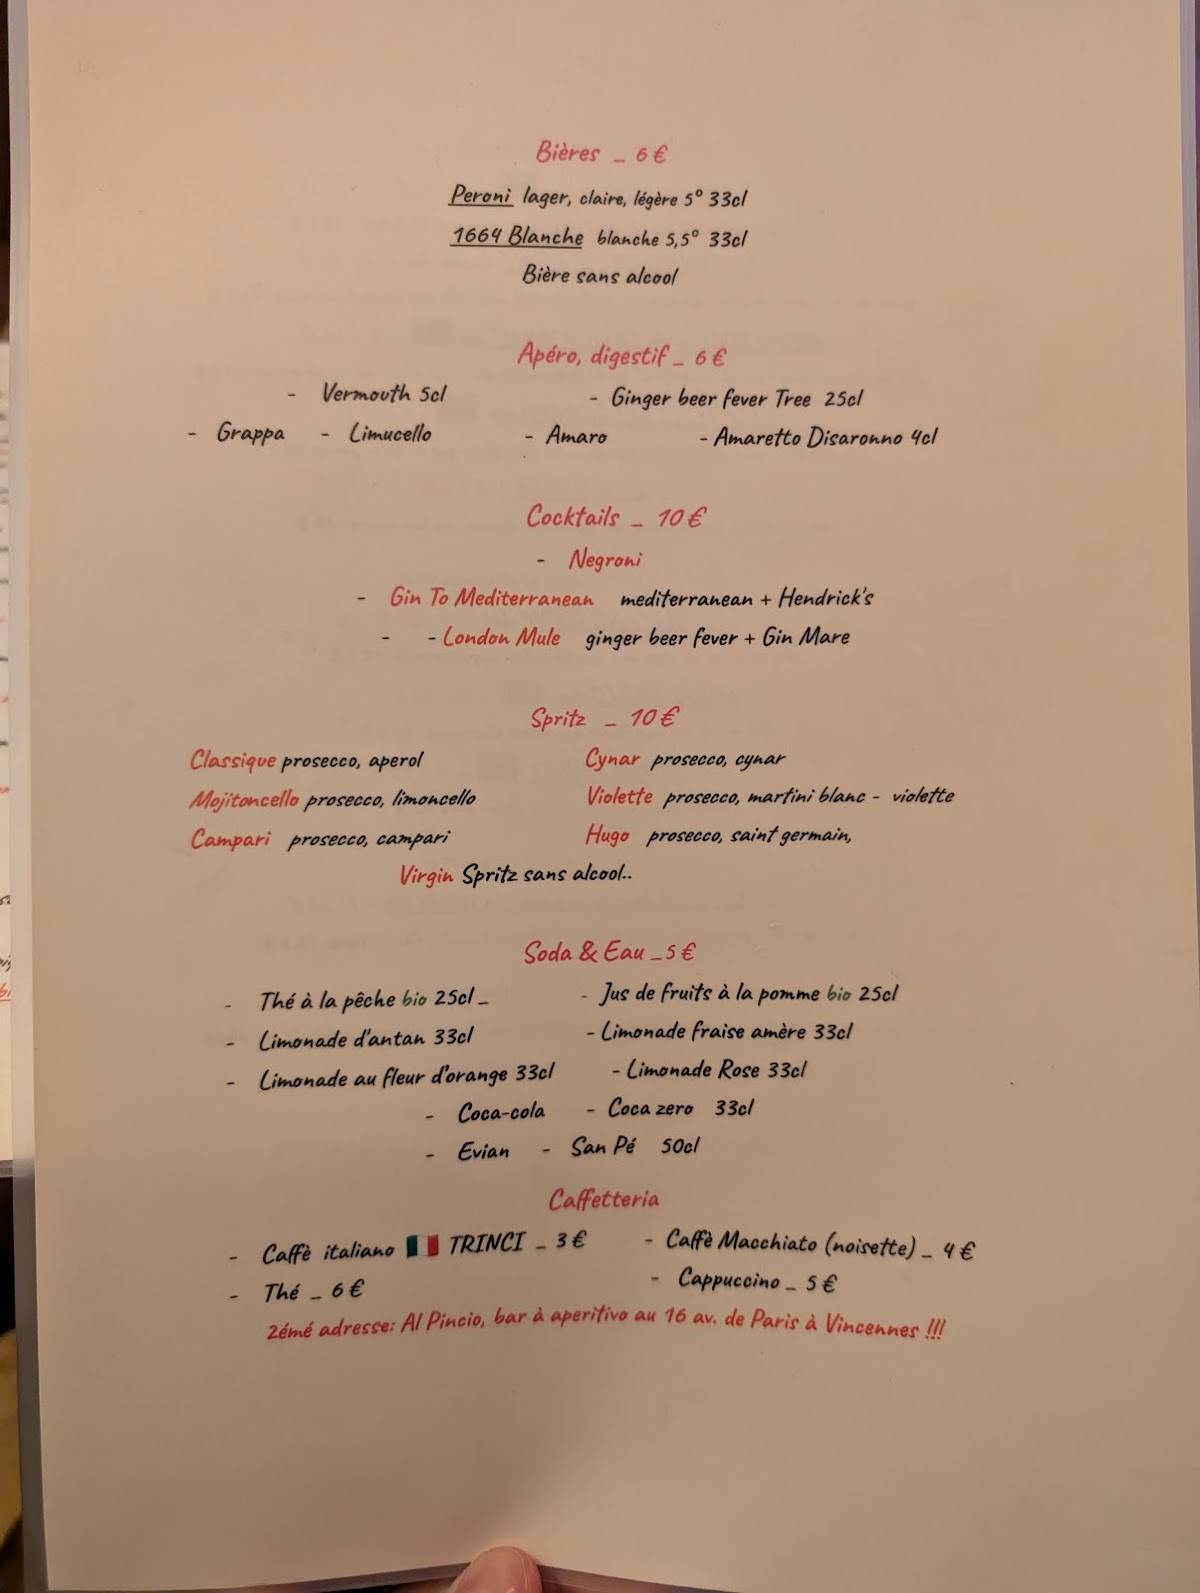 Bières _ 6 €
Peroni lager, claire, légère 5° 33cl
1664 Blanche blanche 5,5° 33cl
Bière sans alcool
Apéro, digestif _ 6 €
- Vermouth 5cl - Ginger beer fever Tree 25cl
- Grappa - Limucello - Amaro - Amaretto Disaronno 4cl
Cocktails _ 10 €
- Negroni
- Gin To Mediterranean mediterranean + Hendrick's
- - London Mule ginger beer fever + Gin Mare
Spritz _ 10 €
Classique prosecco, aperol Cynar prosecco, cynar
Mojitoncello prosecco, limoncello Violette prosecco, martini blanc - violette
Campari prosecco, campari Hugo prosecco, saint germain,
Virgin Spritz sans alcool..
Soda & Eau _5 €
- Thé à la pêche bio 25cl _ - Jus de fruits à la pomme bio 25cl
- Limonade d'antan 33cl - Limonade fraise amère 33cl
- Limonade au fleur d'orange 33cl - Limonade Rose 33cl
- Coca-cola - Coca zero 33cl
- Evian - San Pé 50cl
Caffetteria
- Caffè italiano 🇮🇹 TRINCI _ 3 € - Caffè Macchiato (noisette) _ 4 €
- Thé _ 6 € - Cappuccino _ 5 €
2émé adresse: Al Pincio, bar à aperitivo au 16 av. de Paris à Vincennes !!!